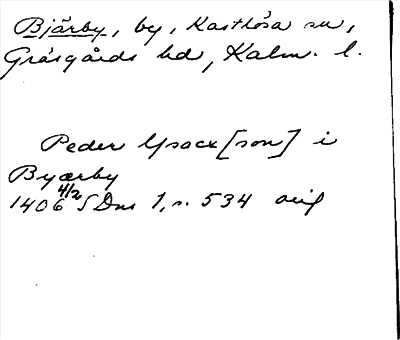 Bjärby, by, Kastlösa sn,
Gräsgårds hd, Kalm. l.
Peder Ysacx[son] i
Byærby
1406 4/2 SDns 1, s. 534 orig